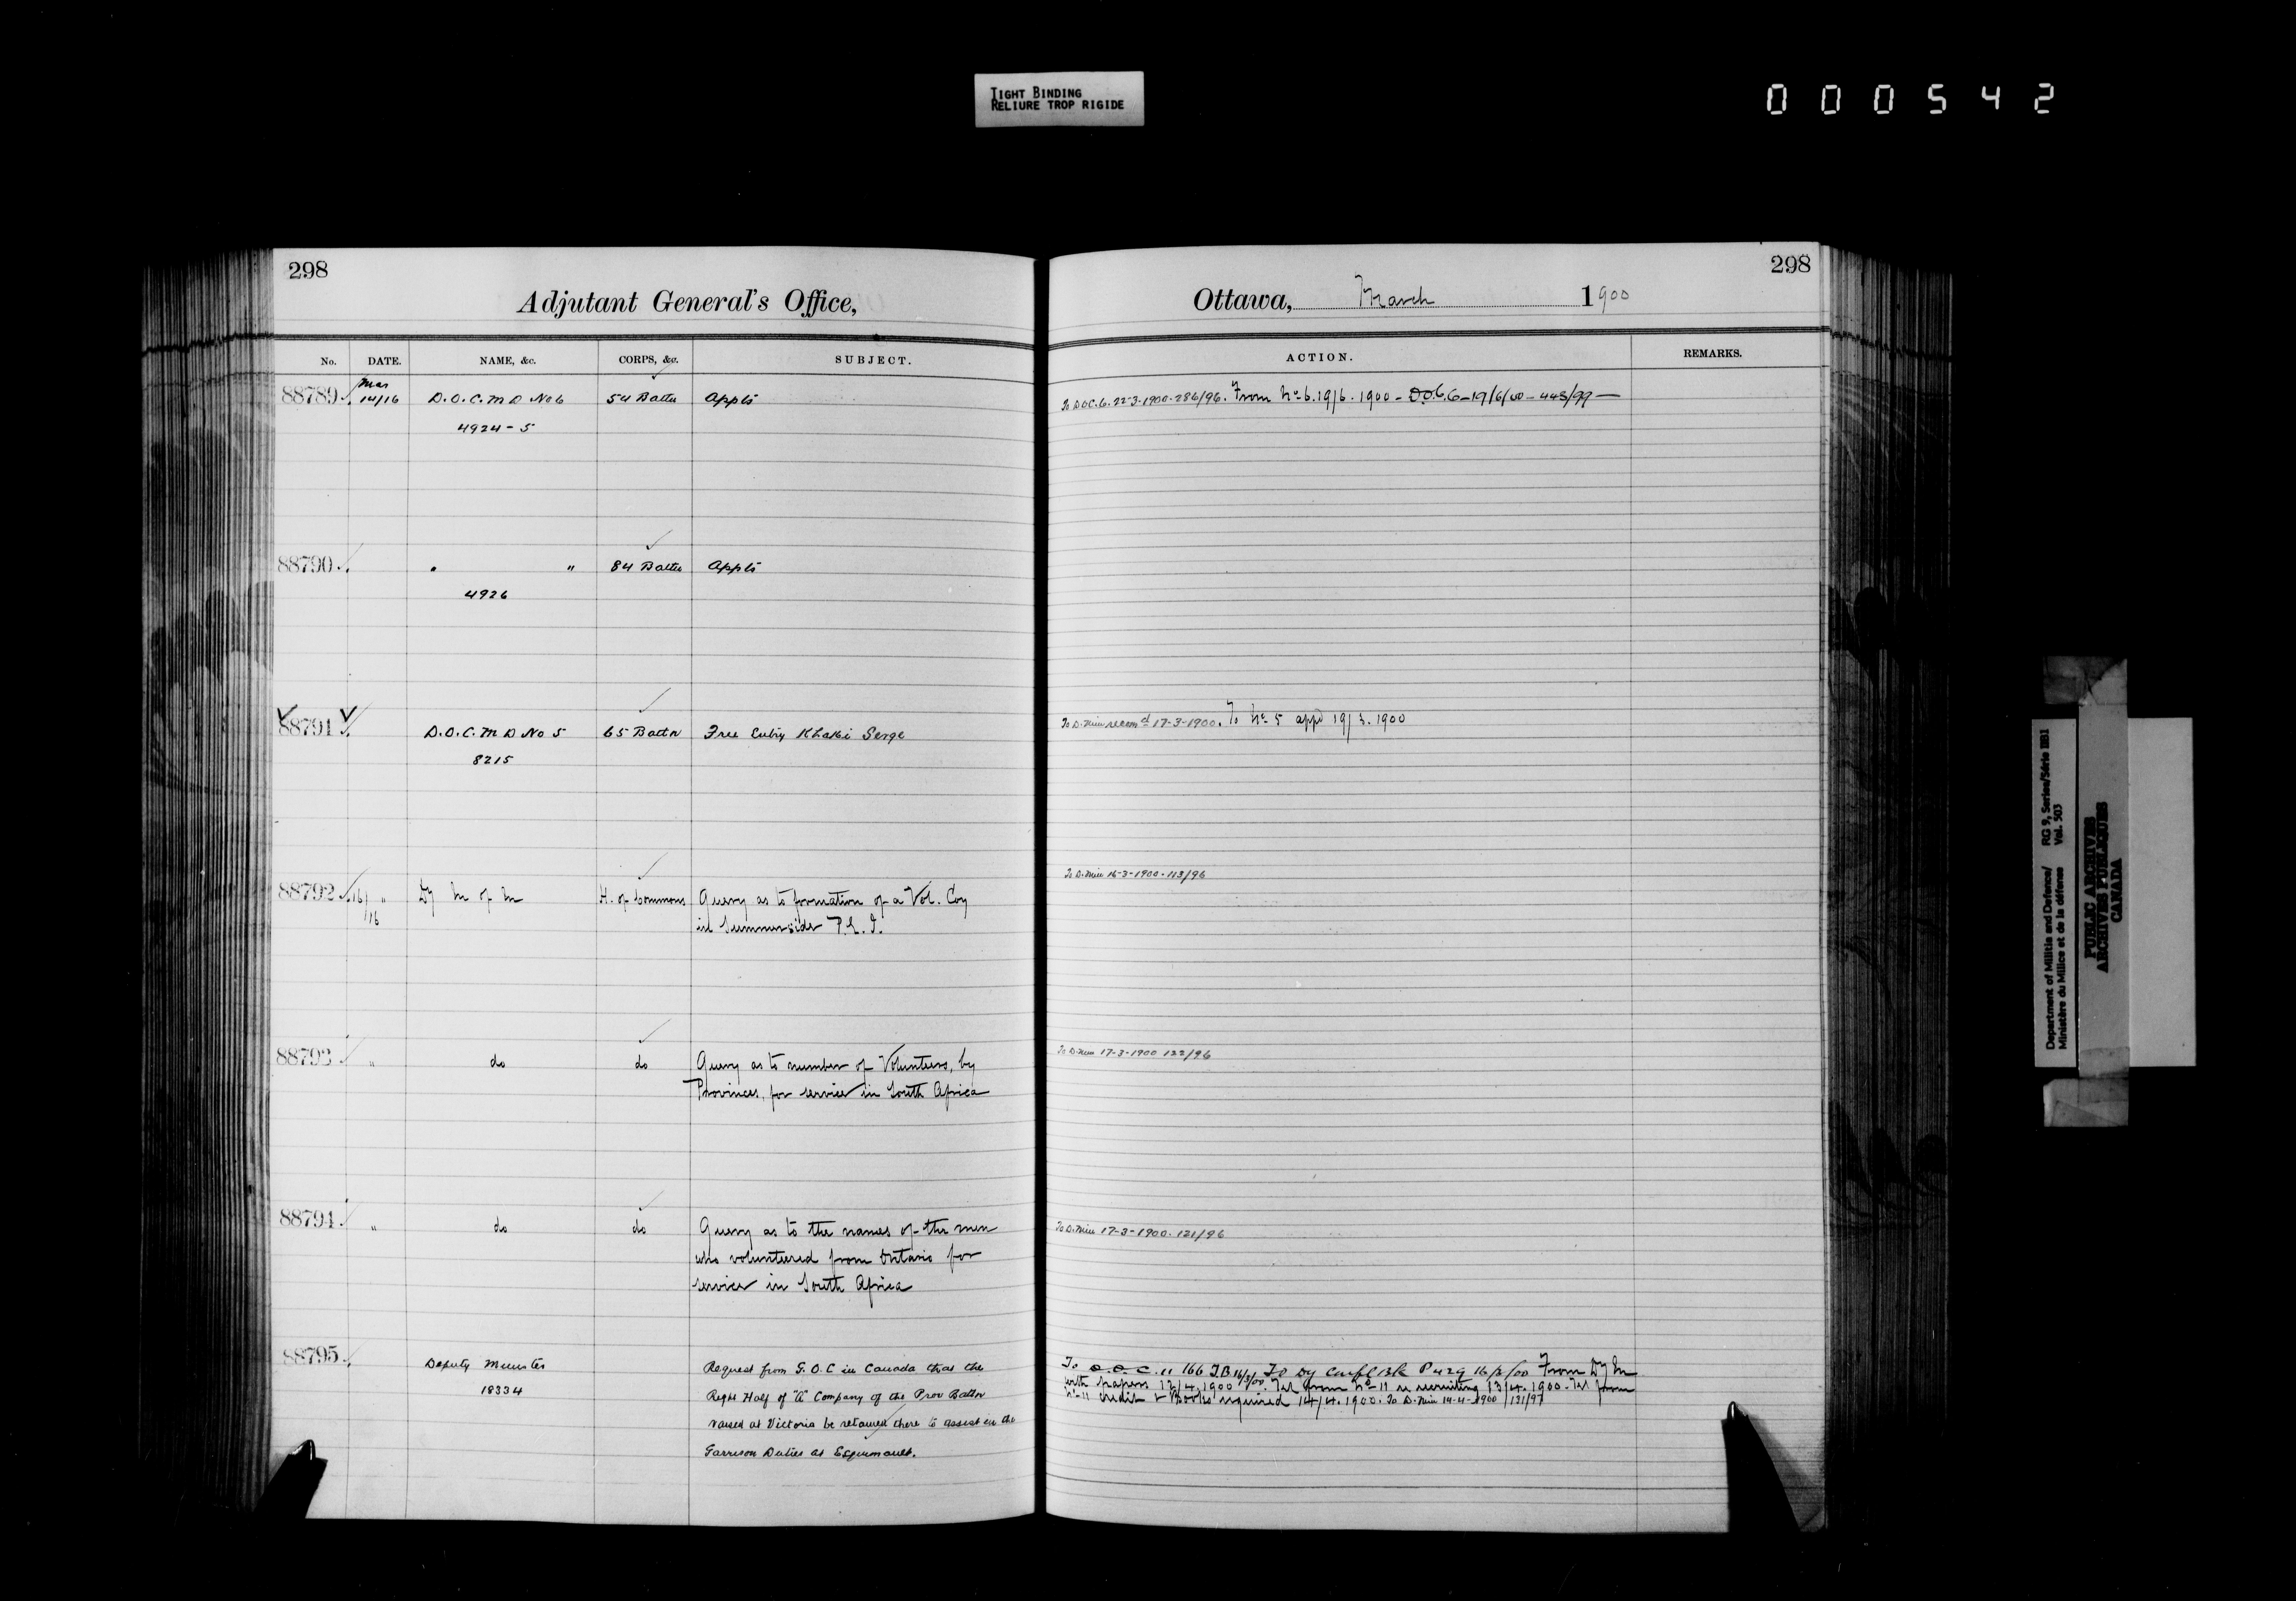 TIGHT BINDING
RELIURE TROP RIGIDE
000542
298
Adjutant General's Office,
No. DATE. NAME, &c. CORPS, &c. SUBJECT.
88789 Mar 14/16 D.O.C. M D No 6 54 Battn Appts
4924-5
88790 " " 84 Battn Appts
4926
88791 D.O.C. M D No 5 65 Battn Free Entry Khaki Serge
8215
88792 16/16 " Dy M of M H. of Commons Query as to formation of a Vol. Coy
in Summerside P.E.I.
88793 " do do Query as to number of Volunteers, by
Provinces, for service in South Africa
88794 " do do Query as to the names of the men
who volunteered from Ontario for
service in South Africa
88795 Deputy Minister Request from G.O.C in Canada that the
18334 Right Half of "A" Company of the Prov Battn
raised at Victoria be retained there to assist in the
Garrison Duties at Esquimault.
298
Ottawa, March 1900
ACTION. REMARKS.
To D.O.C. 6. 22-3-1900-286/96. From No 6. 19/6. 1900 - D.O.C. 6-19/6/00-448/99
To D. Min recomd 17-3-1900. To No 5 appd 19/3. 1900
To D. Min 16-3-1900-113/96
To D. Min 17-3-1900 122/96
To D. Min 17-3-1900. 121/96
To D.O.C. 11 166 16/3/00. To Dy 16/3/00 From Dy M
with papers 12/4. 1900. Tel from No 11 re recruiting 13/4. 1900. Tel from
No 11 credit & Books required 14/4. 1900. To D. Min 14-4-1900 /131/97
Department of Militia and Defence/ RG 9, Series/Série IIB1
Ministère du Milice et de la défense Vol. 503
PUBLIC ARCHIVES
ARCHIVES PUBLIQUES
CANADA